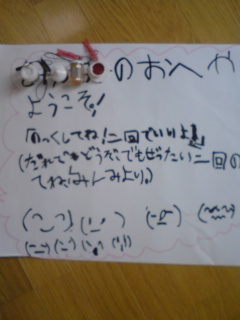 のおへや
ようこそ!
のっくしてね!二回でいいよ!
(だれでもどうぞ。でもぜったい二回の
てね!みんみより。)